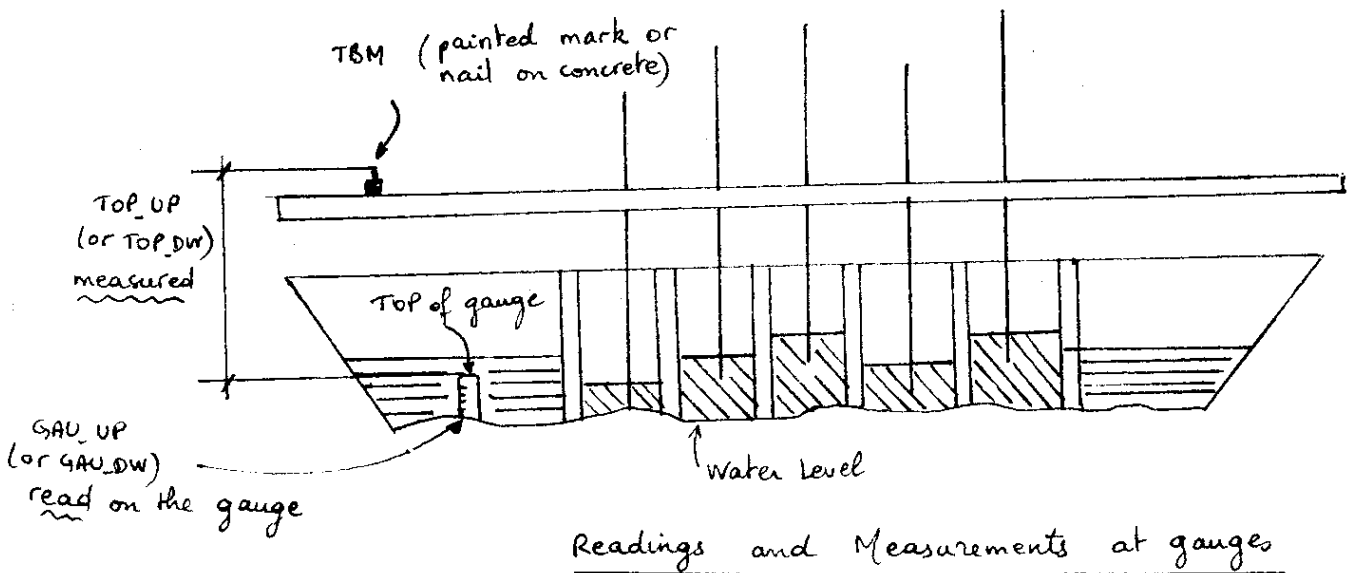 TBM (painted mark or
nail on concrete)
TOP_UP
(or TOP_DW)
measured
TOP of gauge
GAU_UP
(or GAU_DW)
read on the gauge
Water Level
Readings and Measurements at gauges